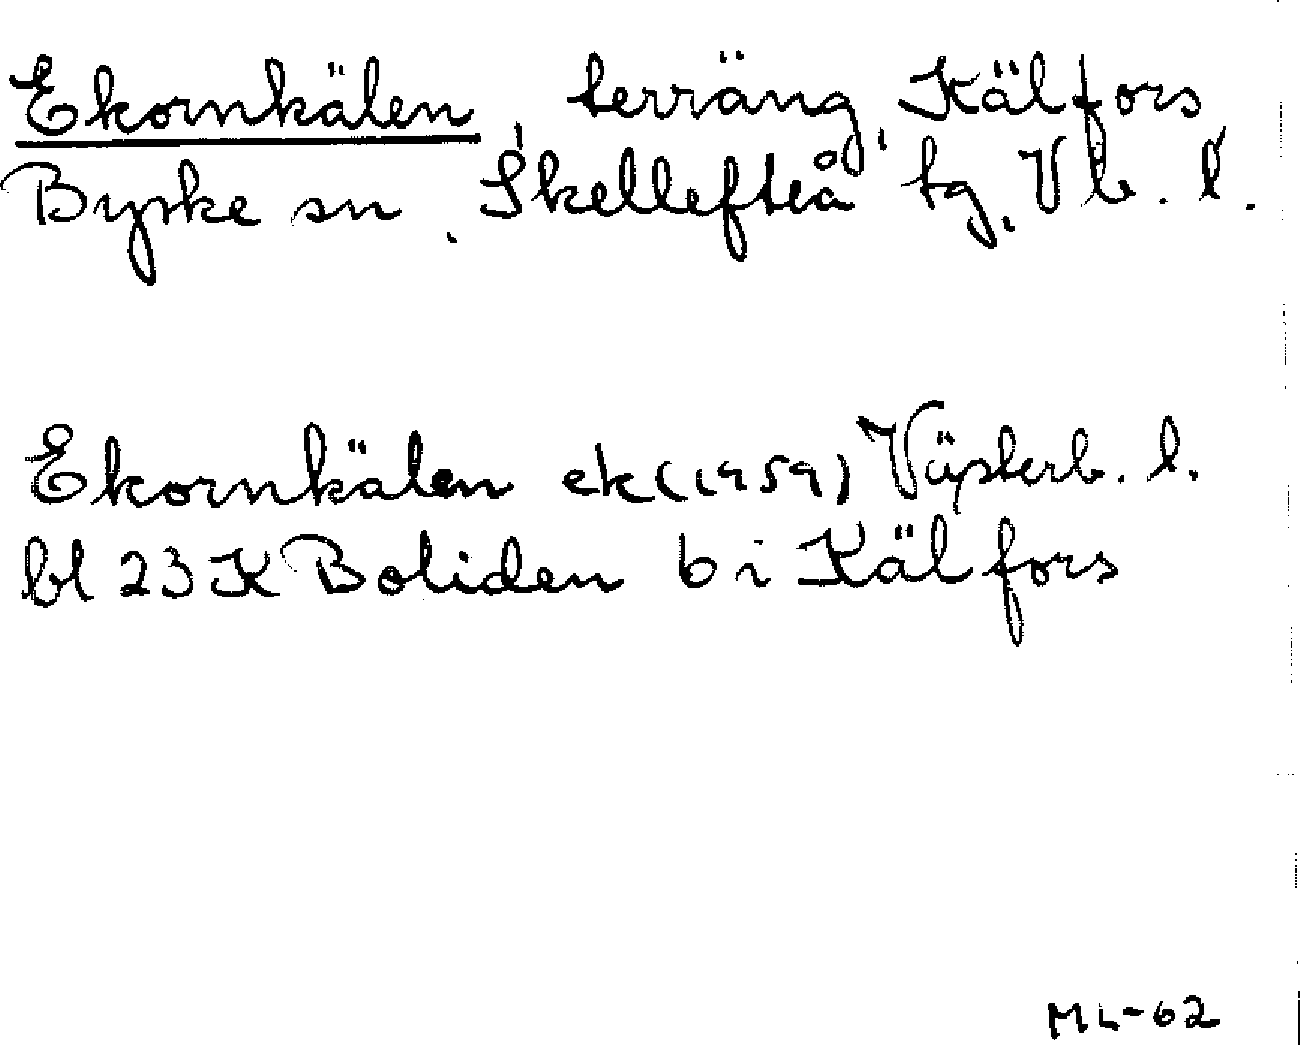 Ekornkälen, terräng, Kälfors
Byske sn, Skellefteå tg, Vb. l.
Ekornkälen ek (1959) Västerb. l.
bl 23 K Boliden b i Kälfors
ML-62